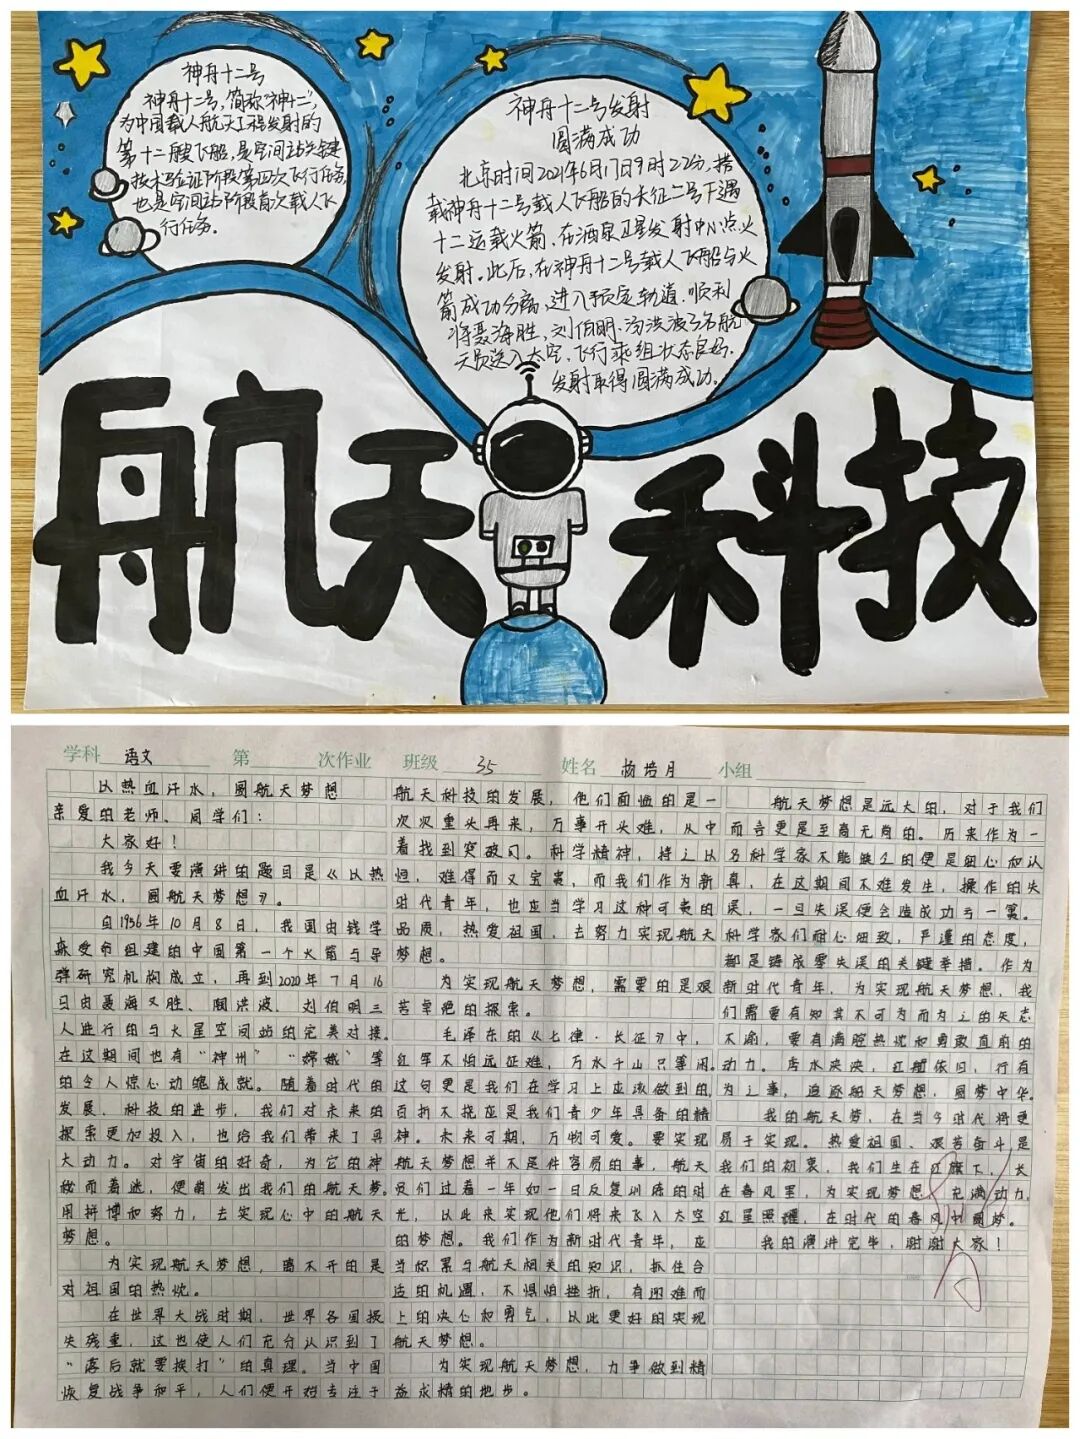 神舟十二号
神舟十二号,简称"神十二",
为中国载人航天工程发射的
第十二艘飞船,是空间站关键
技术验证阶段第四次飞行任务,
也是空间站阶段首次载人飞
行任务。
神舟十二号发射
圆满成功
北京时间2021年6月17日9时22分,搭
载神舟十二号载人飞船的长征二号F遥
十二运载火箭、在酒泉卫星发射中心点火
发射。此后,在神舟十二号载人飞船与火
箭成功分离、进入预定轨道,顺利
将聂海胜、刘伯明、汤洪波3名航
天员送入太空、飞行乘组状态良好、
发射取得圆满成功。
航天科技
学科 语文 第 次作业 班级 35 姓名 杨培月 小组
以热血汗水,圆航天梦想
亲爱的老师、同学们:
大家好!
我今天要演讲的题目是《以热
血汗水,圆航天梦想》。
自1956年10月8日,我国由钱学
森受命组建的中国第一个火箭与导
弹研究机构成立,再到2020年7月16
日由聂海胜、汤洪波、刘伯明三
人进行的与火星空间站的完美对接。
在这期间也有"神州""嫦娥"等
的令人惊心动魄成就。随着时代的
发展,科技的进步,我们对未来的
探索更加投入,也给我们带来了具
大动力。对宇宙的好奇,为它的神
秘而着迷,便萌发出我们的航天梦。
用拼搏和努力,去实现心中的航天
梦想。
为实现航天梦想,离不开的是
对祖国的热忱。
在世界大战时期,世界各国损
失残重,这也使人们充分认识到了
"落后就要挨打"的真理。当中国
恢复战争和平,人们便开始专注于
航天科技的发展,他们面临的是一
次次重头再来,万事开头难,从中
着找到突破口。科学精神,持之以
恒,难得而又宝贵,而我们作为新
时代青年,也应当学习这种可贵的
品质,热爱祖国,去努力实现航天
梦想。
为实现航天梦想,需要的是艰
苦卓绝的探索。
毛泽东的《七律·长征》中,
红军不怕远征难,万水千山只等闲。
这句更是我们在学习上应该做到的,
百折不挠应是我们青少年具备的精
神。未来可期,万物可爱。要实现
航天梦想并不是件容易的事,航天
员们过着一年如一日反复训练的时
光,以此来实现他们将来飞入太空
的梦想。我们作为新时代青年,应
当积累与航天相关的知识,抓住合
适的机遇,不惧怕挫折,有迎难而
上的决心和勇气,以此更好的实现
航天梦想。
为实现航天梦想,力争做到精
益求精的地步。
航天梦想是远大的,对于我们
而言更是至高无尚的。历来作为一
名科学家不能缺乏的便是细心和认
真,在这期间不难发生,操作的失
误,一旦失误便会造成功亏一篑。
科学家们耐心细致,严谨的态度,
都是铸成零失误的关键举措。作为
新时代青年,为实现航天梦想,我
们需要有知其不可为而为之的矢志
不渝,要有满腔热忱和勇敢直前的
动力。秀水泱泱,红船依旧,行有
为之事,追逐船天梦想,圆梦中华。
我的航天梦,在当今时代将更
易于实现。热爱祖国、艰苦奋斗是
我们的初衷,我们生在红旗下,长
在春风里,为实现梦想,充满动力,
红星照耀,在时代的春风中圆梦。
我的演讲完毕,谢谢大家!